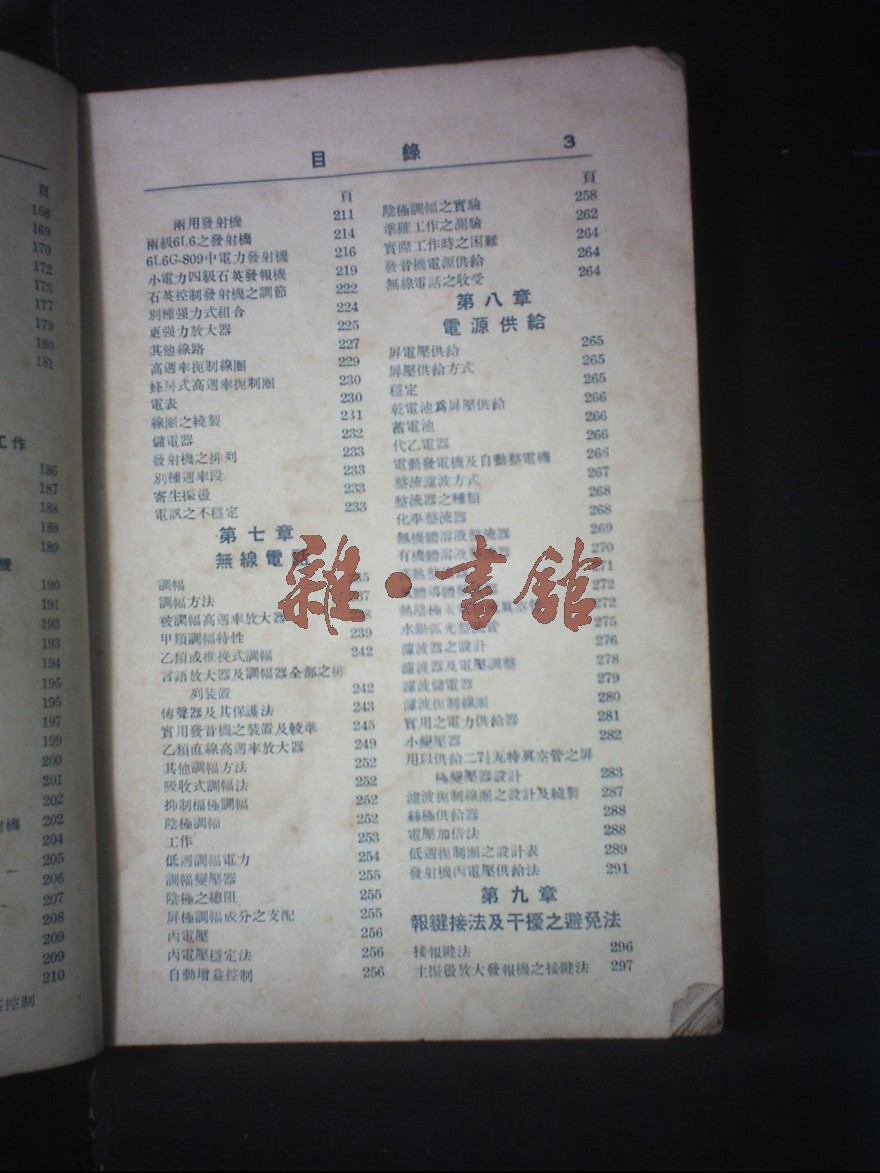 頁
168
169
170
172
173
177
179
180
181
工作
186
187
188
188
189
190
191
193
193
194
195
195
197
199
200
201
202
202
204
205
206
207
208
209
209
210
控制
目錄 3
頁
兩用發射機 211
兩級6L6之發射機 214
6L6G-809中電力發射機 216
小電力四級石英發報機 219
石英控制發射機之調節 222
別種强力式組合 224
更强力放大器 225
其他線路 227
高週率扼制線圈 229
蜂房式高週率扼制圈 230
電表 230
線圈之繞製 231
儲電器 232
發射機之排列 233
別種週率段 233
寄生振盪 233
電訊之不穩定 233
第七章
無線電話
調幅
調幅方法
被調幅高週率放大器
甲類調幅特性 239
乙類或推挽式調幅 242
言語放大器及調幅器全部之排
列裝置 242
傳聲器及其保護法 243
實用發音機之裝置及較準 245
乙類直線高週率放大器 249
其他調幅方法 252
吸收式調幅法 252
抑制柵極調幅 252
陰極調幅 252
工作 253
低週調幅電力 254
調幅變壓器 255
陰極之總阻 255
屏極調幅成分之支配 255
丙電壓 256
丙電壓穩定法 256
自動增益控制 256
頁
陰極調幅之實驗 258
準確工作之測驗 262
實際工作時之困難 264
發音機電源供給 264
無線電話之收受 264
第八章
電源供給
屏電壓供給 265
屏壓供給方式 265
穩定 265
乾電池爲屏壓供給 266
蓄電池 266
代乙電器 266
電動發電機及自動整電機 266
整流濾波方式 267
整流器之種類 268
化學整流器 268
無機體溶液整流器 269
有機體溶液整流器 270
271
272
272
水銀弧光整流管 275
濾波器之設計 276
濾波器及電壓調整 278
濾波儲電器 279
濾波扼制線圈 280
實用之電力供給器 281
小變壓器 282
用以供給二7½瓦特眞空管之屏
極變壓器設計 283
濾波扼制線圈之設計及繞製 287
絲極供給器 288
電壓加倍法 288
低週扼制圈之設計表 289
發射機丙電壓供給法 291
第九章
報鍵接法及干擾之避免法
接報鍵法 296
主振盪放大發報機之接鍵法 297
雜·書舘